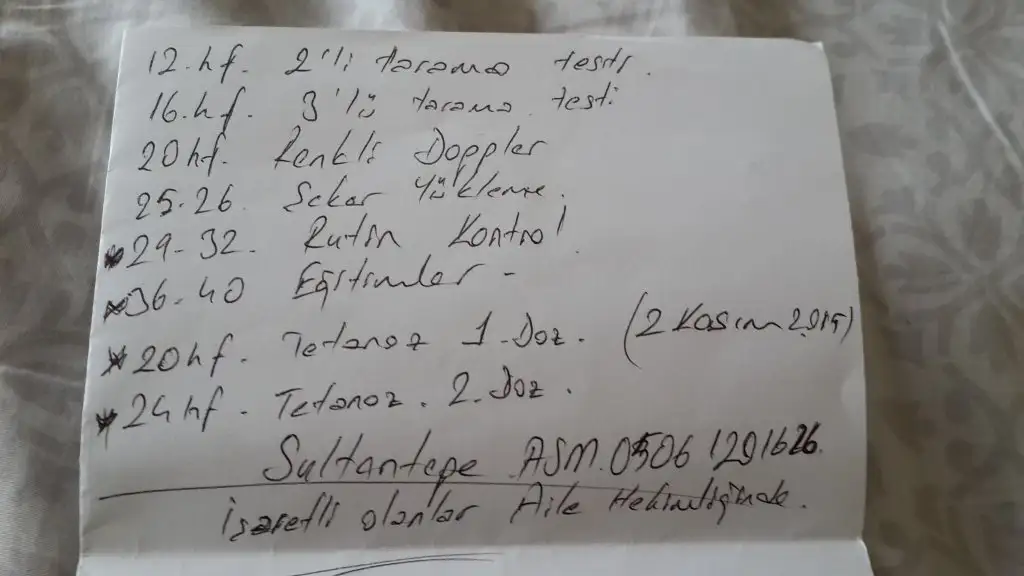 12.hf. 2'li tarama testi.
16.hf. 3'lü tarama testi
20hf. Renkli Doppler
25-26. Seker Yükleme.
* 29-32. Rutin Kontrol
* 36-40 Eğitimler -
* 20hf. Tetanoz 1.Doz. (2 Kasım 2015)
* 24hf. Tetanoz. 2.Doz.
Sultantepe ASM. 0506 1291626.
İşaretli olanlar Aile Hekimliğinde.